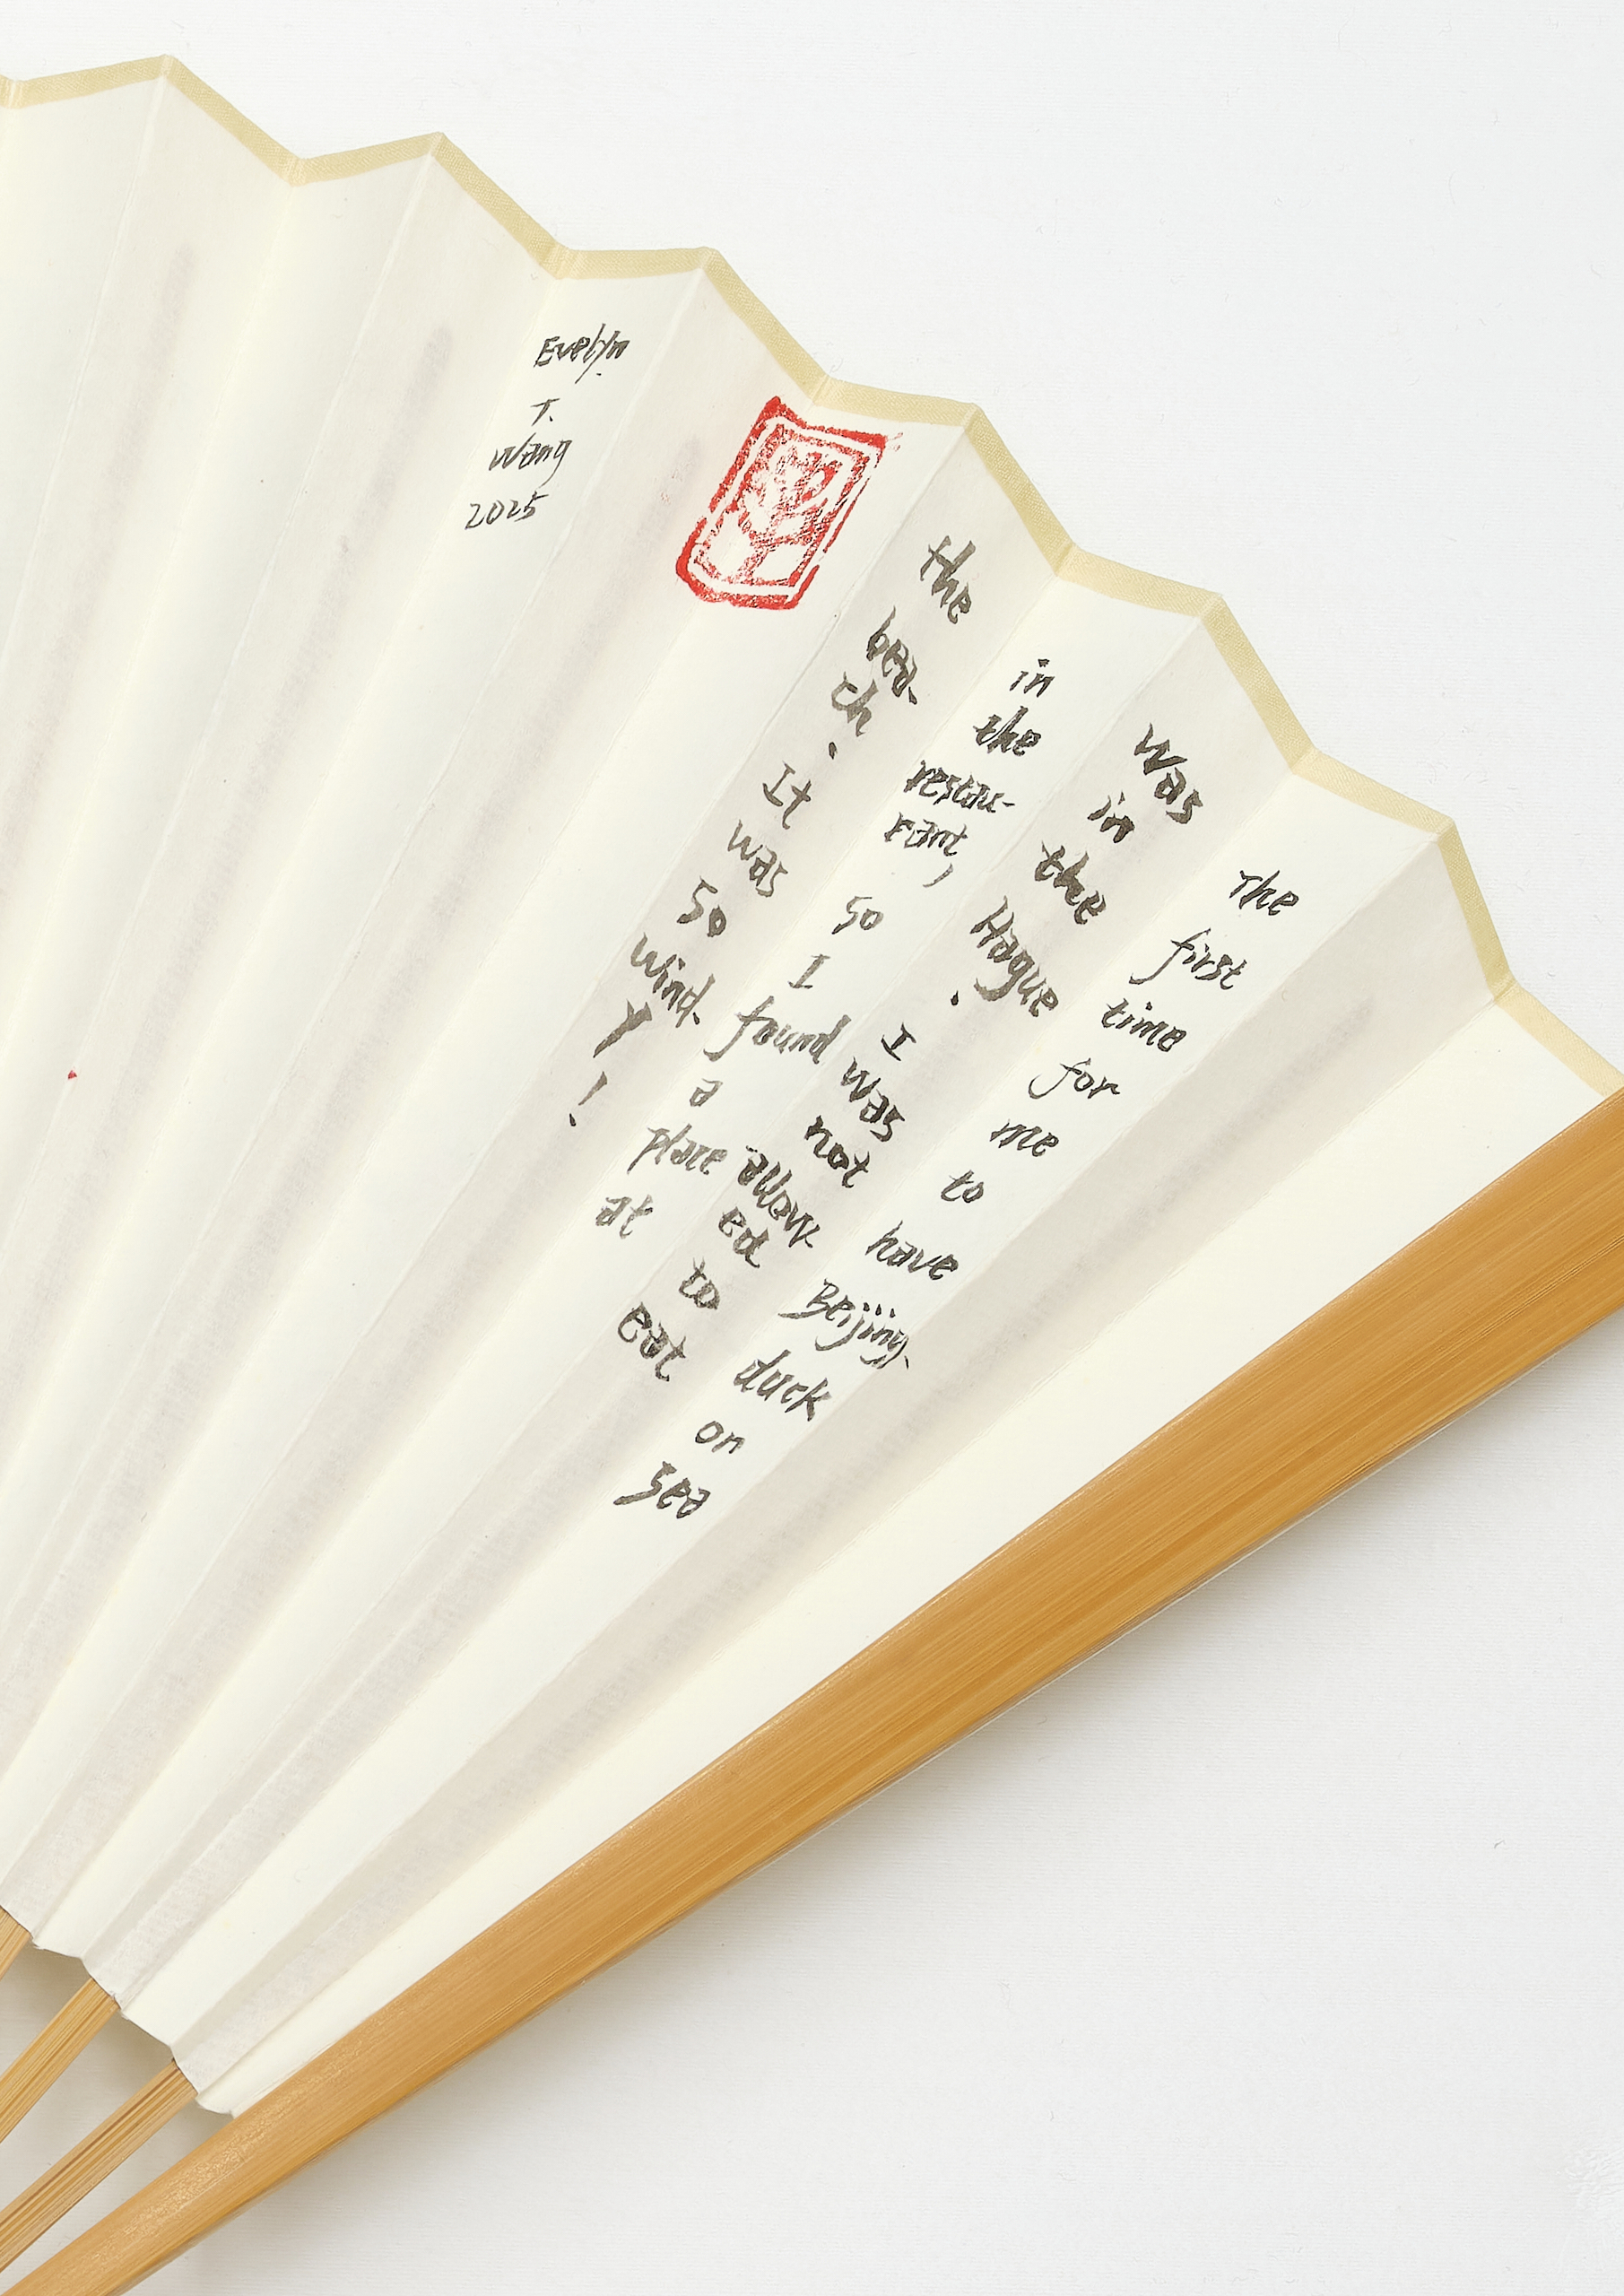 The first time for me to have Beijing- duck on sea
was in the Hague. I was not allow- ed to eat
in the restau- rant, so I found a place at
the bea- ch. It was so wind- y!
Evelyn T. Wang 2025